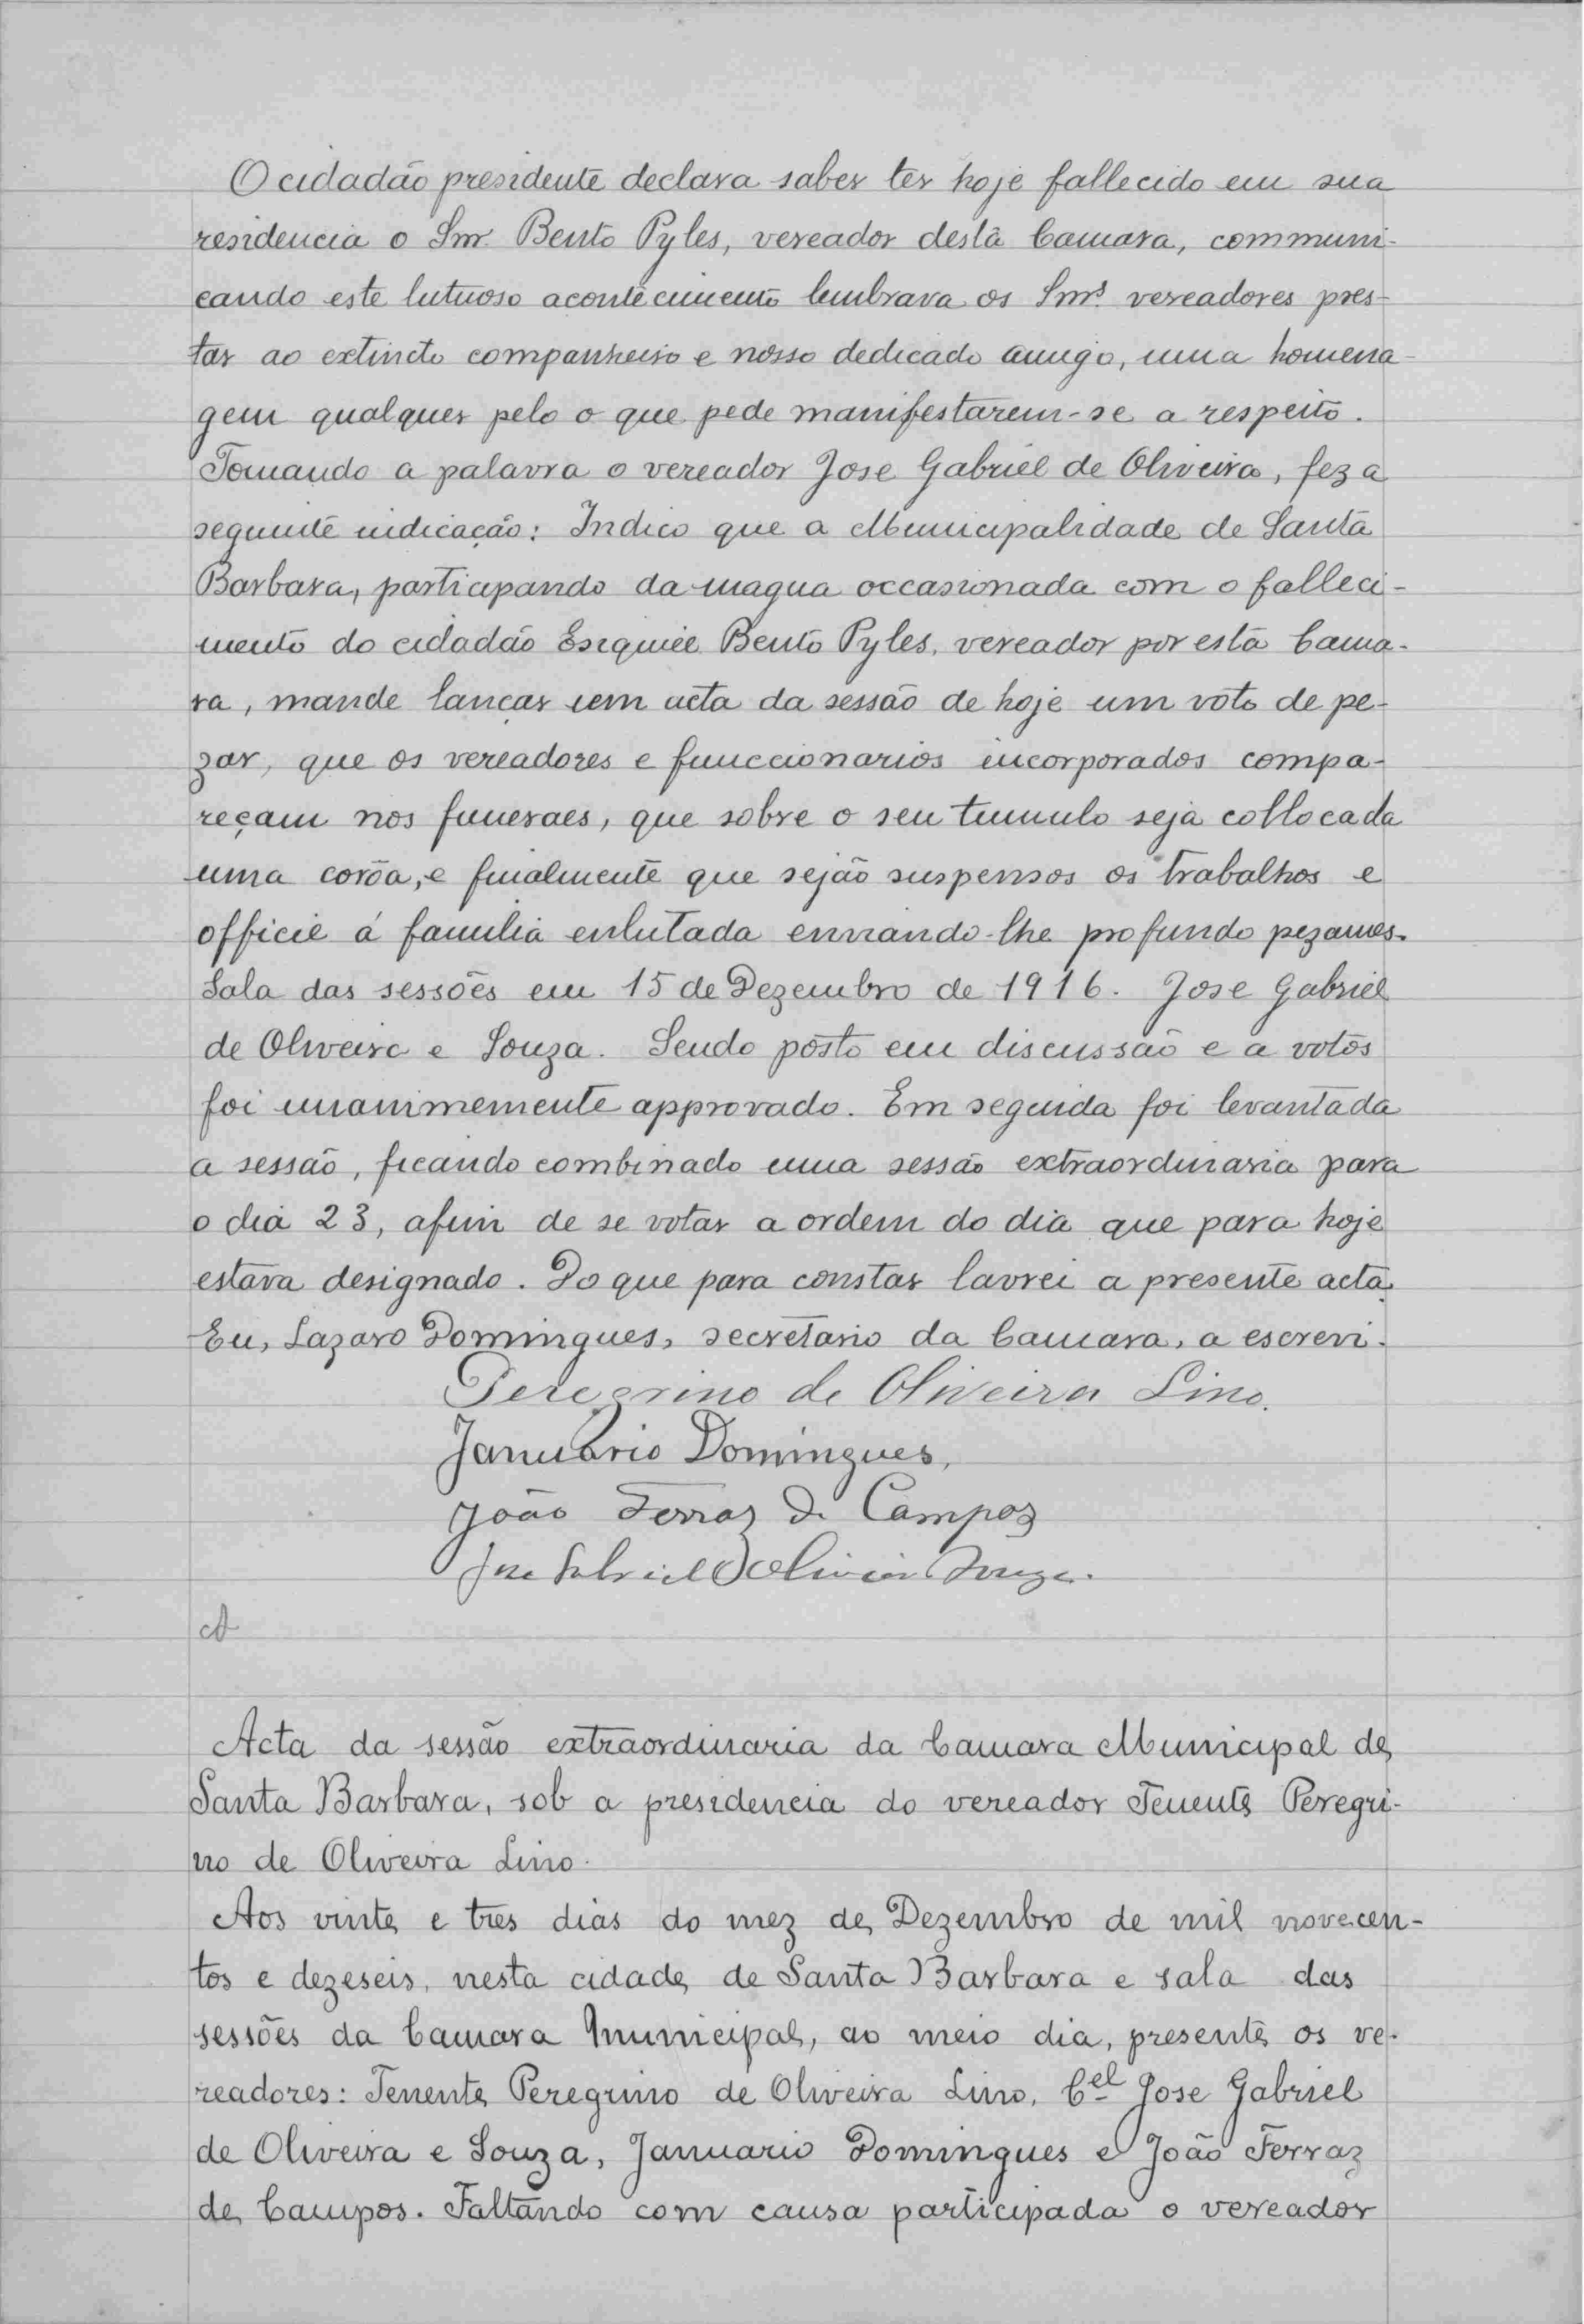 O cidadão presidente declara saber ter hoje fallecido em sua
residencia o Snr. Bento Pyles, vereador desta Camara, communi-
cando este lutuoso acontecimento lembrava os Snrs. vereadores pres-
tar ao extincto companheiro e nosso dedicado amigo, uma homena-
gem qualquer pelo o que pede manifestarem-se a respeito.
Tomando a palavra o vereador Jose Gabriel de Oliveira, fez a
seguinte indicação: Indico que a Municipalidade de Santa
Barbara, participando da magua occasionada com o falleci-
mento do cidadão Esequiel Bento Pyles, vereador por esta Cama-
ra, mande lançar em acta da sessão de hoje um voto de pe-
zar, que os vereadores e funccionarios incorporados compa-
reçam nos funeraes, que sobre o seu tumulo seja collocada
uma corôa, e finalmente que sejão suspensos os trabalhos e
officie á familia enlutada enviando-lhe profundo pezames.
Sala das sessões em 15 de Dezembro de 1916. Jose Gabriel
de Oliveira e Souza. Sendo posto em discussão e a votos
foi unanimemente approvado. Em seguida foi levantada
a sessão, ficando combinado uma sessão extraordinaria para
o dia 23, afim de se votar a ordem do dia que para hoje
estava designado. Do que para constar lavrei a presente acta.
Eu, Lazaro Domingues, secretario da Camara, a escrevi.
Peregrino de Oliveira Lino.
Januário Domingues,
João Ferraz de Campos
Jose Gabriel de Oliveira Souza.
A
Acta da sessão extraordinaria da Camara Municipal de
Santa Barbara, sob a presidencia do vereador Tenente Peregri-
no de Oliveira Lino.
Aos vinte e tres dias do mez de Dezembro de mil novecen-
tos e dezeseis, nesta cidade de Santa Barbara e sala das
sessões da Camara Municipal, ao meio dia, presente os ve-
readores: Tenente Peregrino de Oliveira Lino, Cel Jose Gabriel
de Oliveira e Souza, Januario Domingues e João Ferraz
de Campos. Faltando com causa participada o vereador